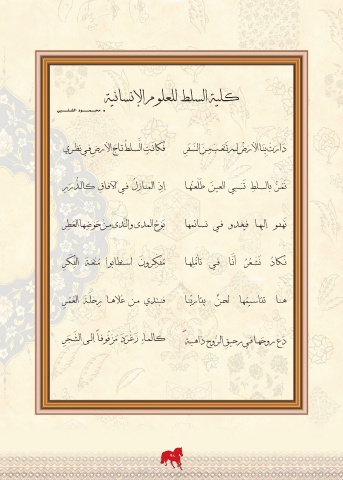 كلية السلط للعلوم الإنسانية
محمود الشلبي
دارت بنا الأرض لم تتعب من السفر فكانت السلط تاج الأرض في نظري
بالسلط تسبي العين طلعتها إذ المنازل في الآفاق كالدرر
تهفو إليها فيغدو في نسائمها بوح المدى والندى من حوضها العطر
تكاد تشعر أنا في مفكرون استطابوا متعة الفكر
هنا لحن فنبتدي من علاها رحلة العمر
دع روحها في رحيق الروح ذاهبة كالماء زغرد مزفوفاً إلى الشجر